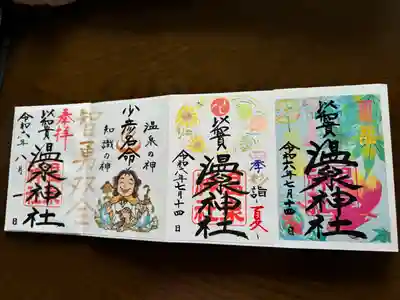 温泉神社
令和六年七月十四日
季節詣
夏
温泉神社
令和六年七月十四日
温泉の神
少彦名命
知識の神
智勇双全
奉拝
温泉神社
令和六年八月一日